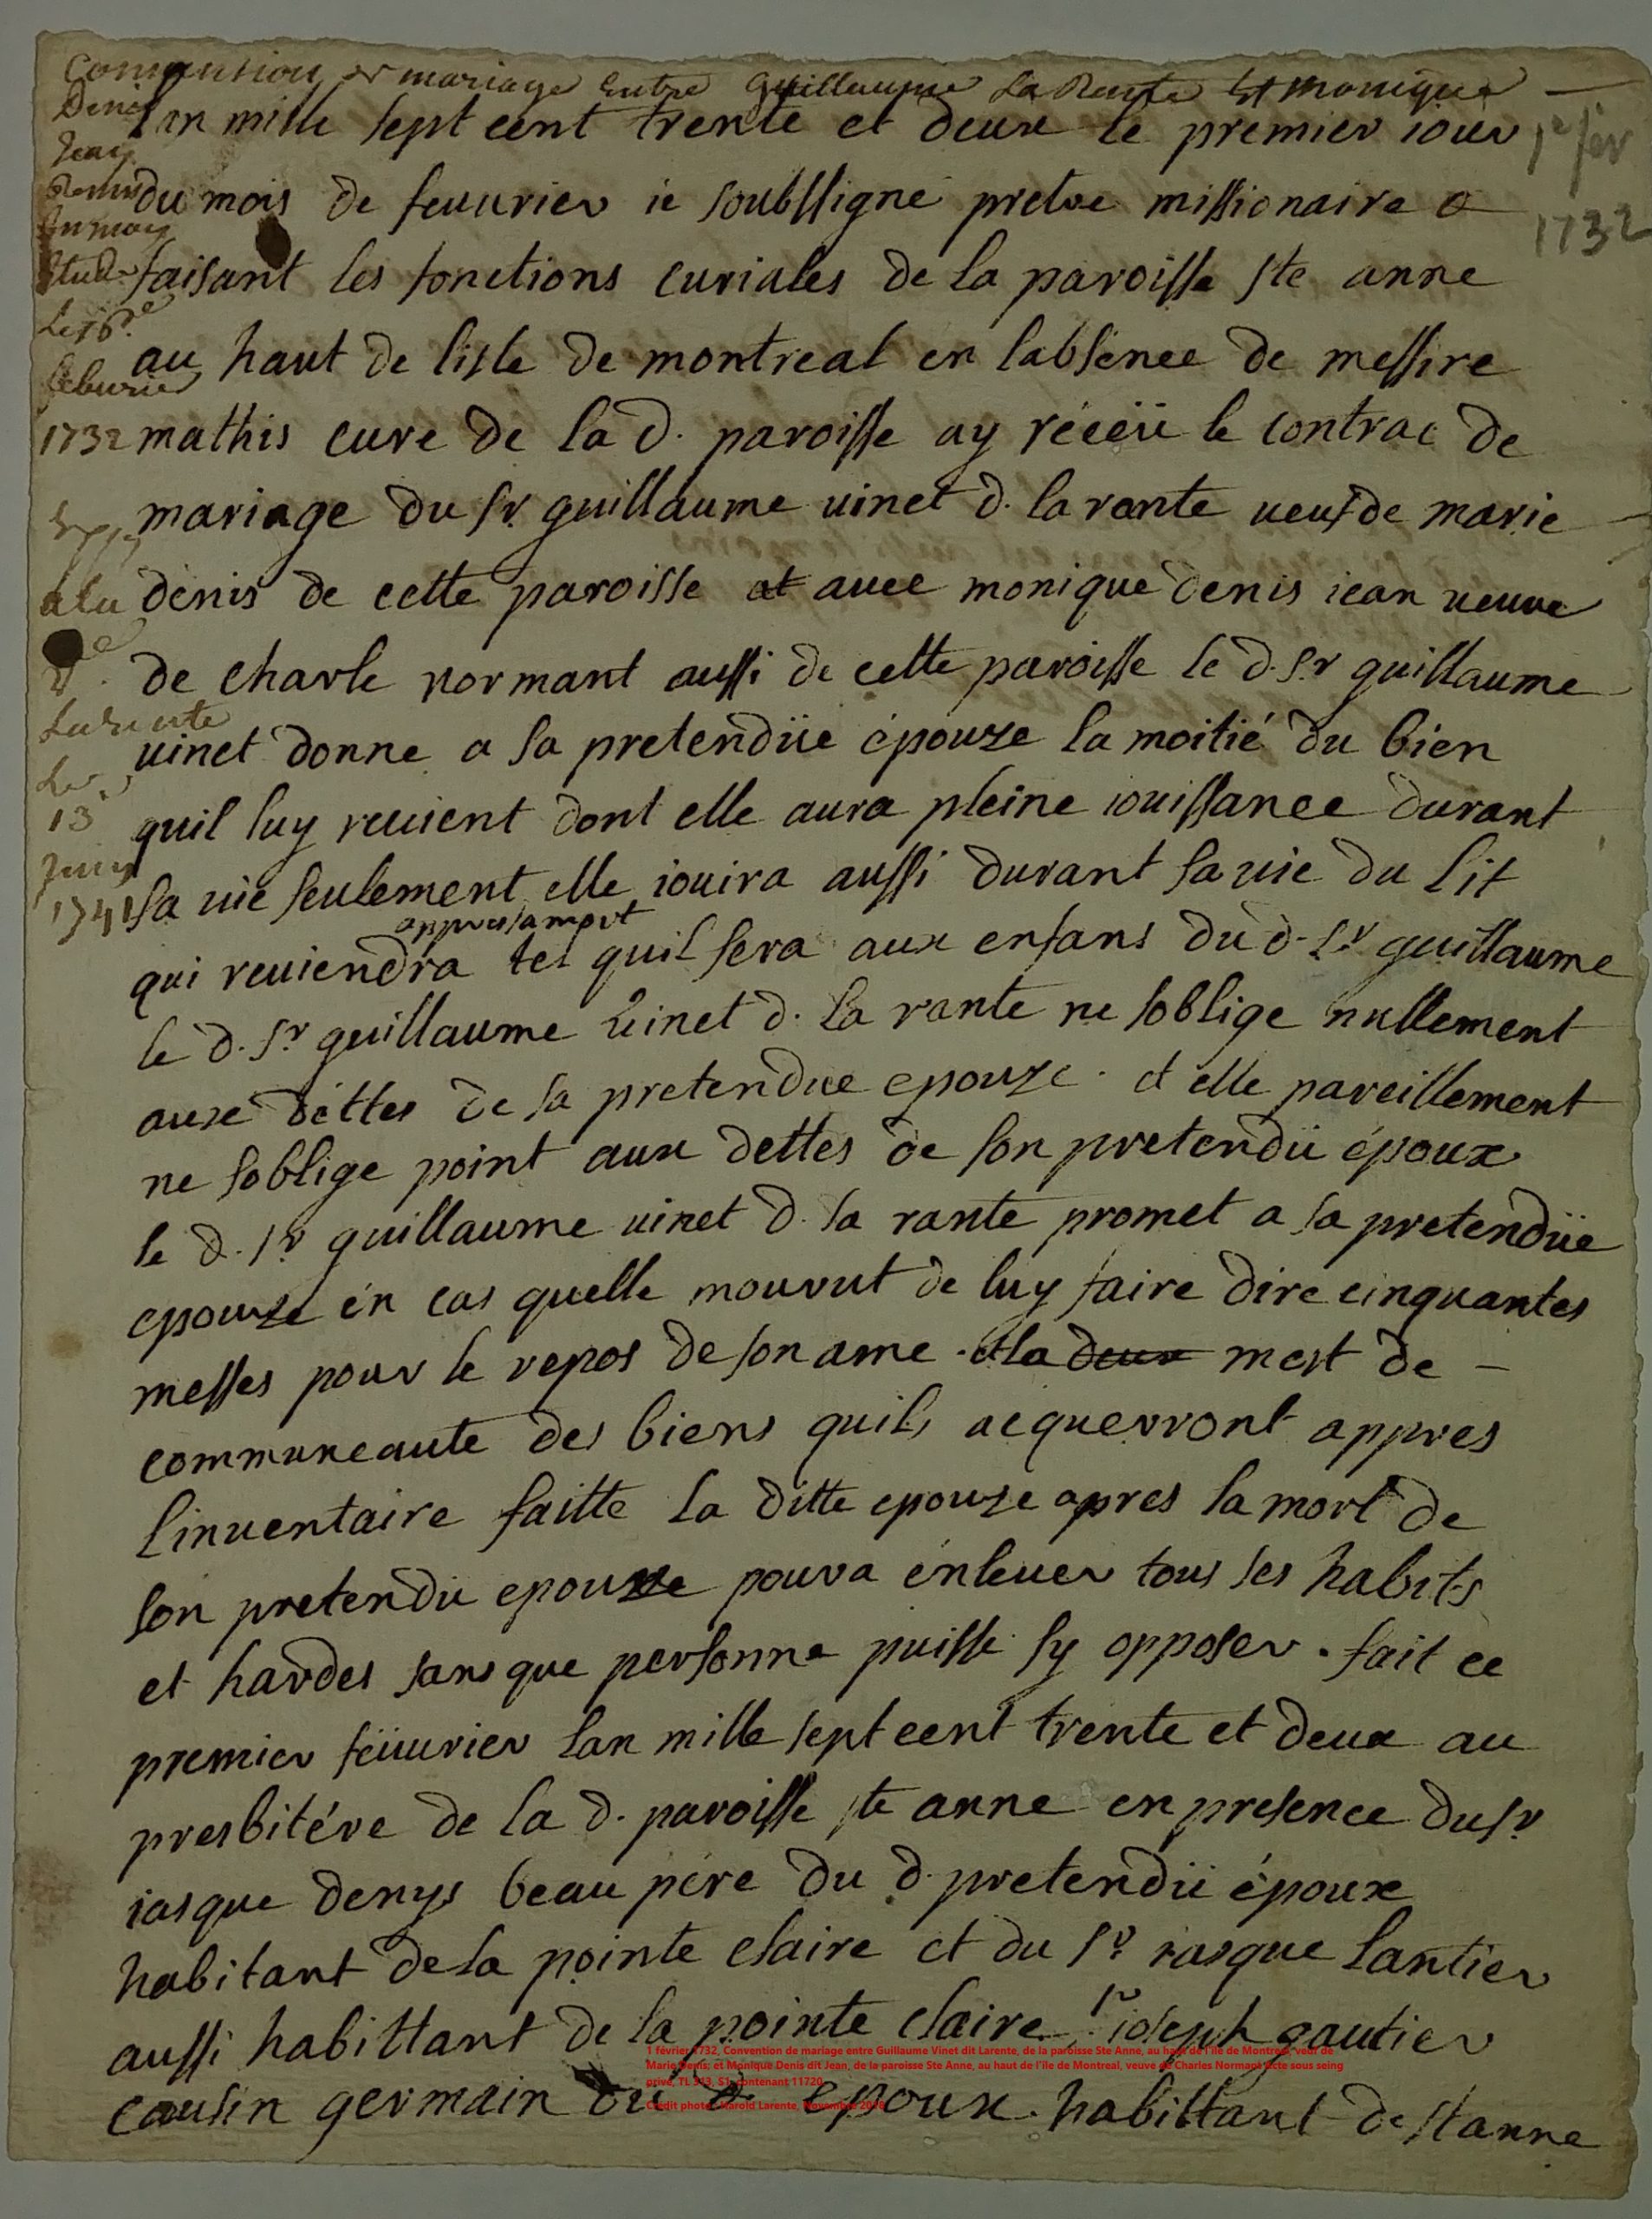 Conuention de mariage Entre Guillaume La Rente Et Monique
Denis
Jean
1r fev
1732
lan mille sept cent trente et deux le premier iour
du mois de feuurier ie soubssigné pretre missionaire
faisant les fonctions curiales de la paroisse ste anne
au haut de lisle de montreal en labsence de messire
mathis cure de la d. paroisse ay réceü le contrac de
mariage du sr. guillaume uinet d. la rante ueuf de marie
denis de cette paroisse et auec monique denis iean ueuue
de charle normant aussi de cette paroisse le d. sr guillaume
uinet donne a sa pretendüe épouze la moitié du bien
quil luy reuient dont elle aura pleine iouissance durant
sa uie seulement elle iouira aussi durant sa uie du lit
appres sa mort
qui reuiendra tel quil sera aux enfans du d. sr guillaume
le d. sr guillaume uinet d. la rante ne soblige nullement
aux déttes de sa pretendue epouze. et elle pareillement
ne soblige point aux dettes de son pretendü époux
le d. sr guillaume uinet d. la rante promet a sa pretendüe
epouze én cas quelle mourut de luy faire dire cinquantes
messes pour le repos de son ame. et la deux mort de
communeaute des biens quils acquerront appres
linuentaire faitte la ditte epouze apres la mort de
son pretendu epouxe poura énleuer tous ses habits
et hardes sans que personne puisse sy opposer. fait ce
premier féuurier lan mille sept cent trente et deux au
presbitére de la d. paroisse ste anne en presence du sr
iasque denys beau pére du d. pretendü époux
habitant de la pointe claire et du sr iasque lantier
aussi habittant de la pointe claire sr ioseph gautier
cousin germain du d. epoux. habittant de st anne
ala
Larente
Le
13e
Juin
1741
Le 16e
feburier
1732
1 février 1732, Convention de mariage entre Guillaume Vinet dit Larente, de la paroisse Ste Anne, au haut de l'île de Montreal, veuf de
Marie Denis; et Monique Denis dit Jean, de la paroisse Ste Anne, au haut de l'île de Montreal, veuve de Charles Normant acte sous seing
privé, TL 313, S1, contenant 11720
Crédit photo: Harold Larente, Novembre